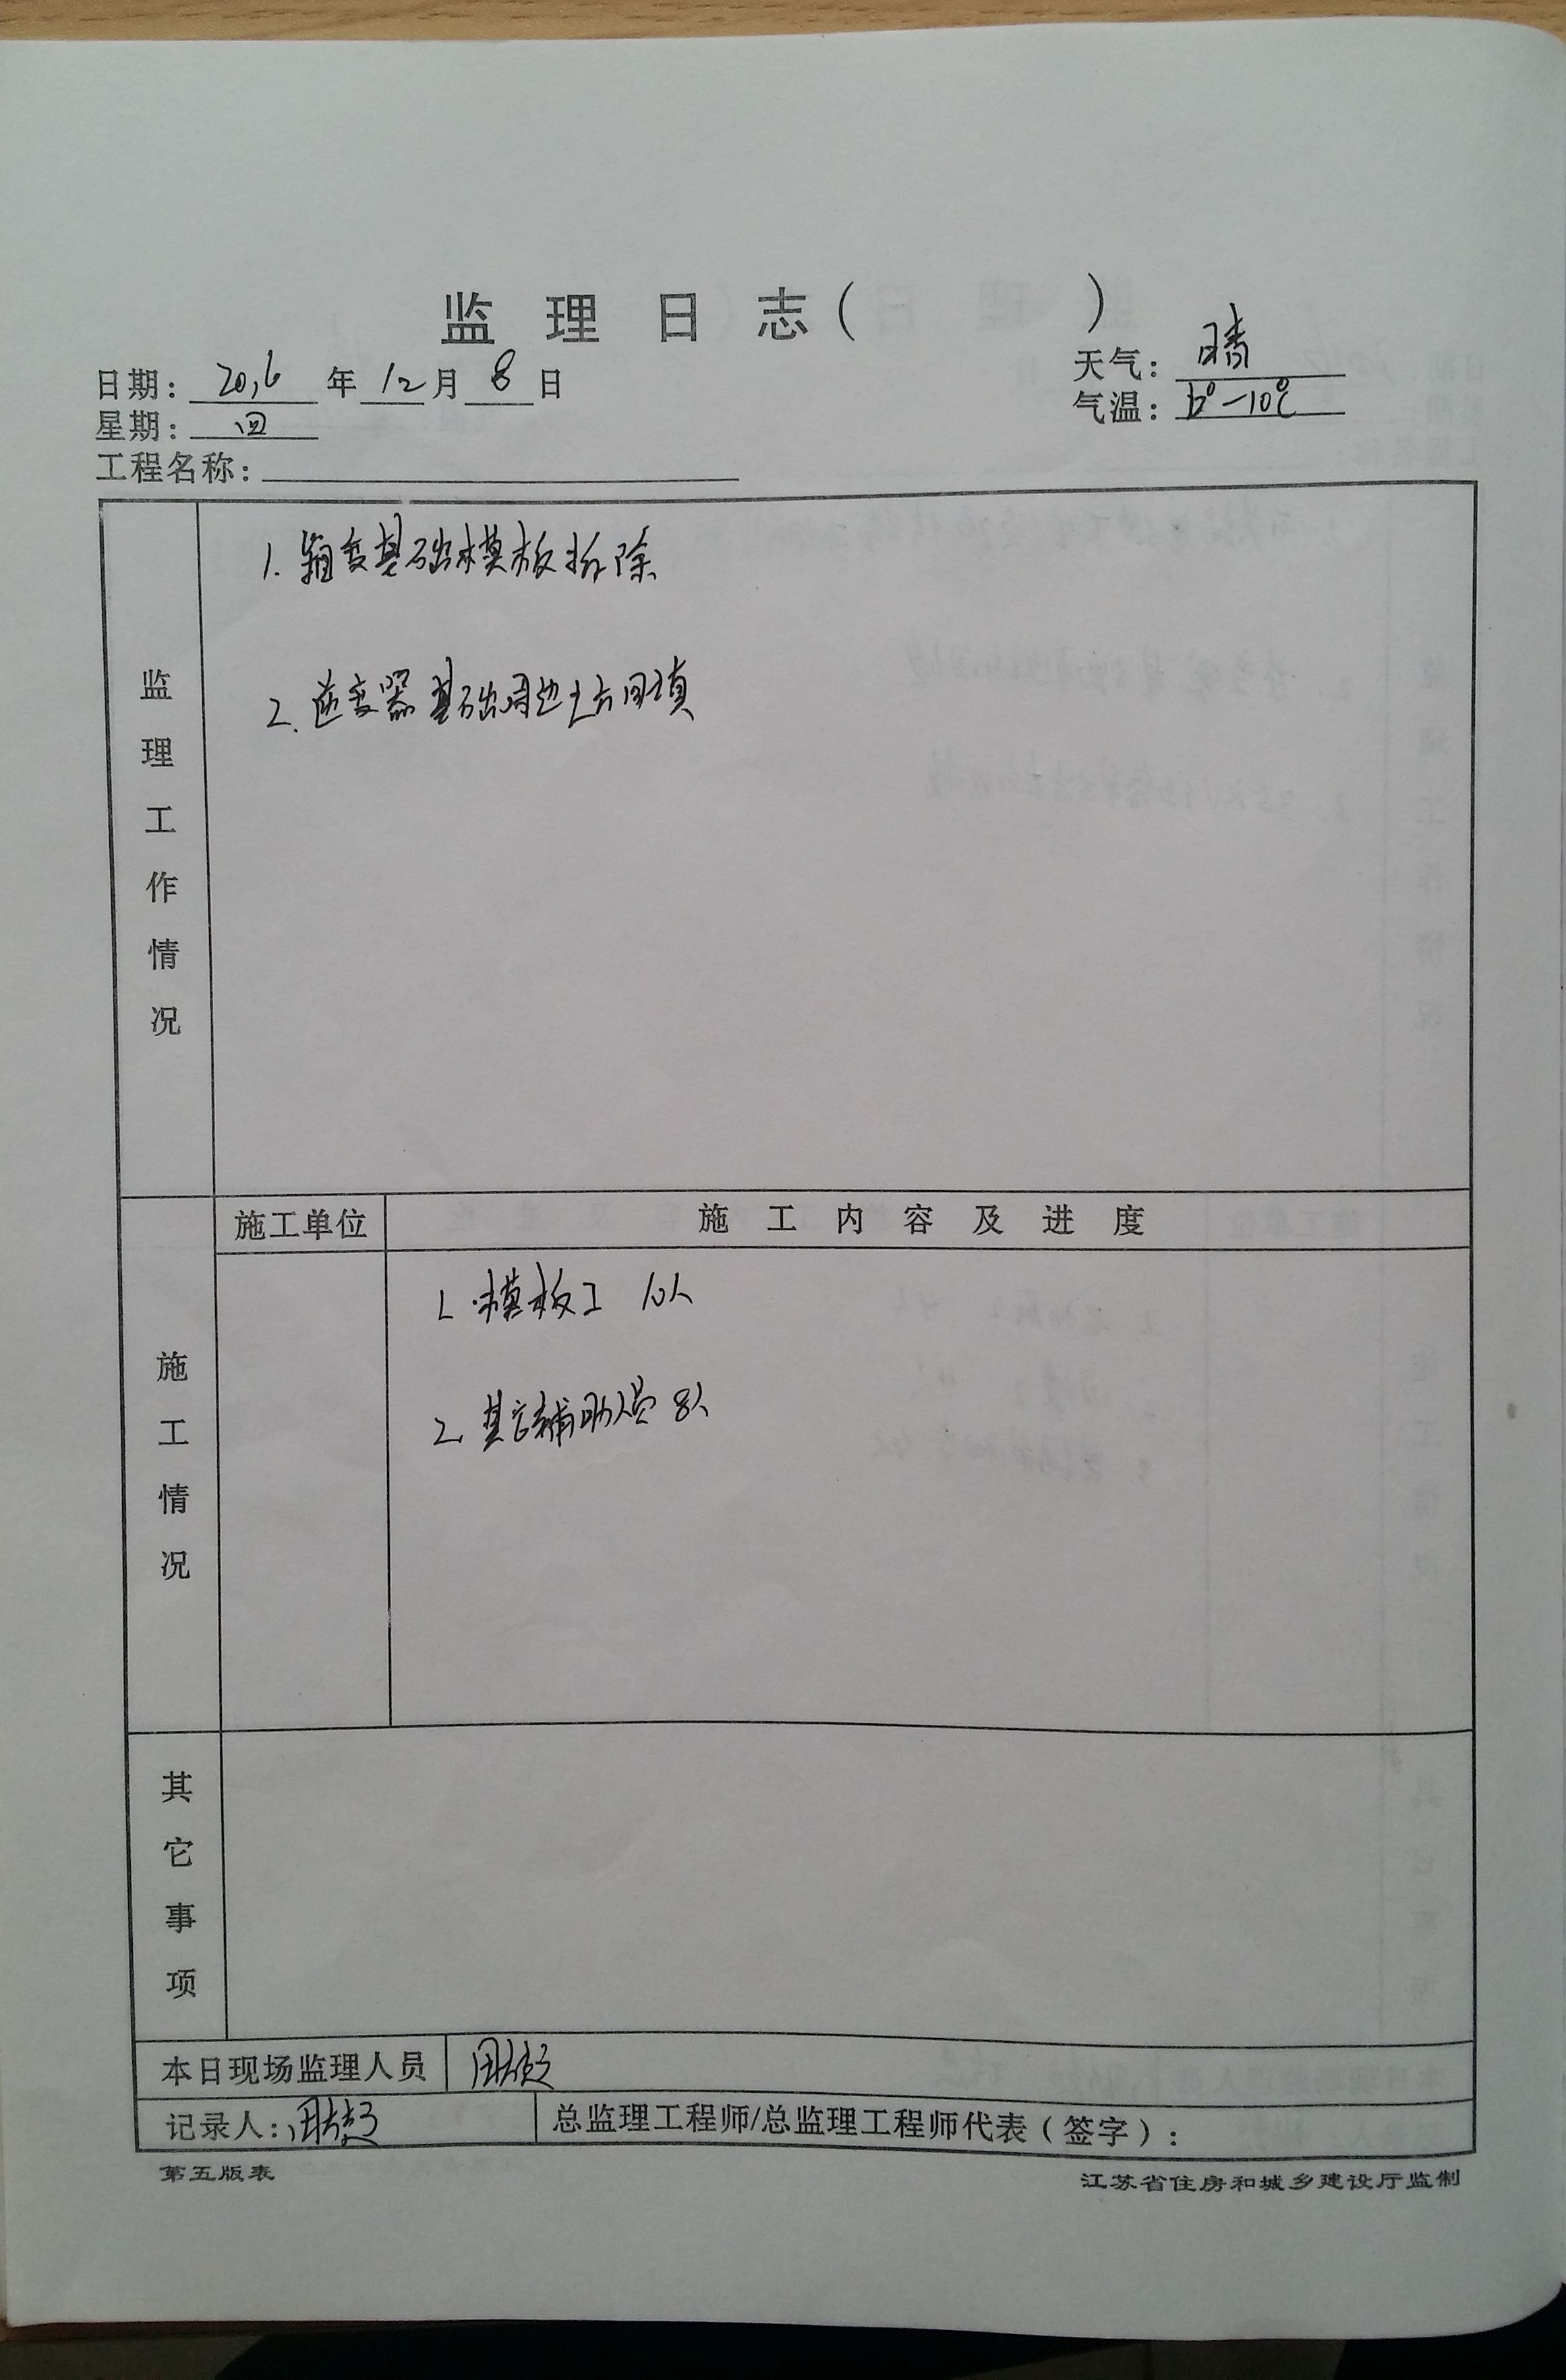 监理日志(　　)
日期: 2016 年 12 月 8 日
天气: 晴
星期: 四
气温: 6°-10℃
工程名称:
监理工作情况
1. 箱变基础模板拆除
2. 逆变器基础周边土方回填
施工单位 施工内容及进度
施工情况
1. 模板工 10人
2. 其它辅助人员 8人
其它事项
本日现场监理人员
记录人:
总监理工程师/总监理工程师代表(签字):
第五版表
江苏省住房和城乡建设厅监制